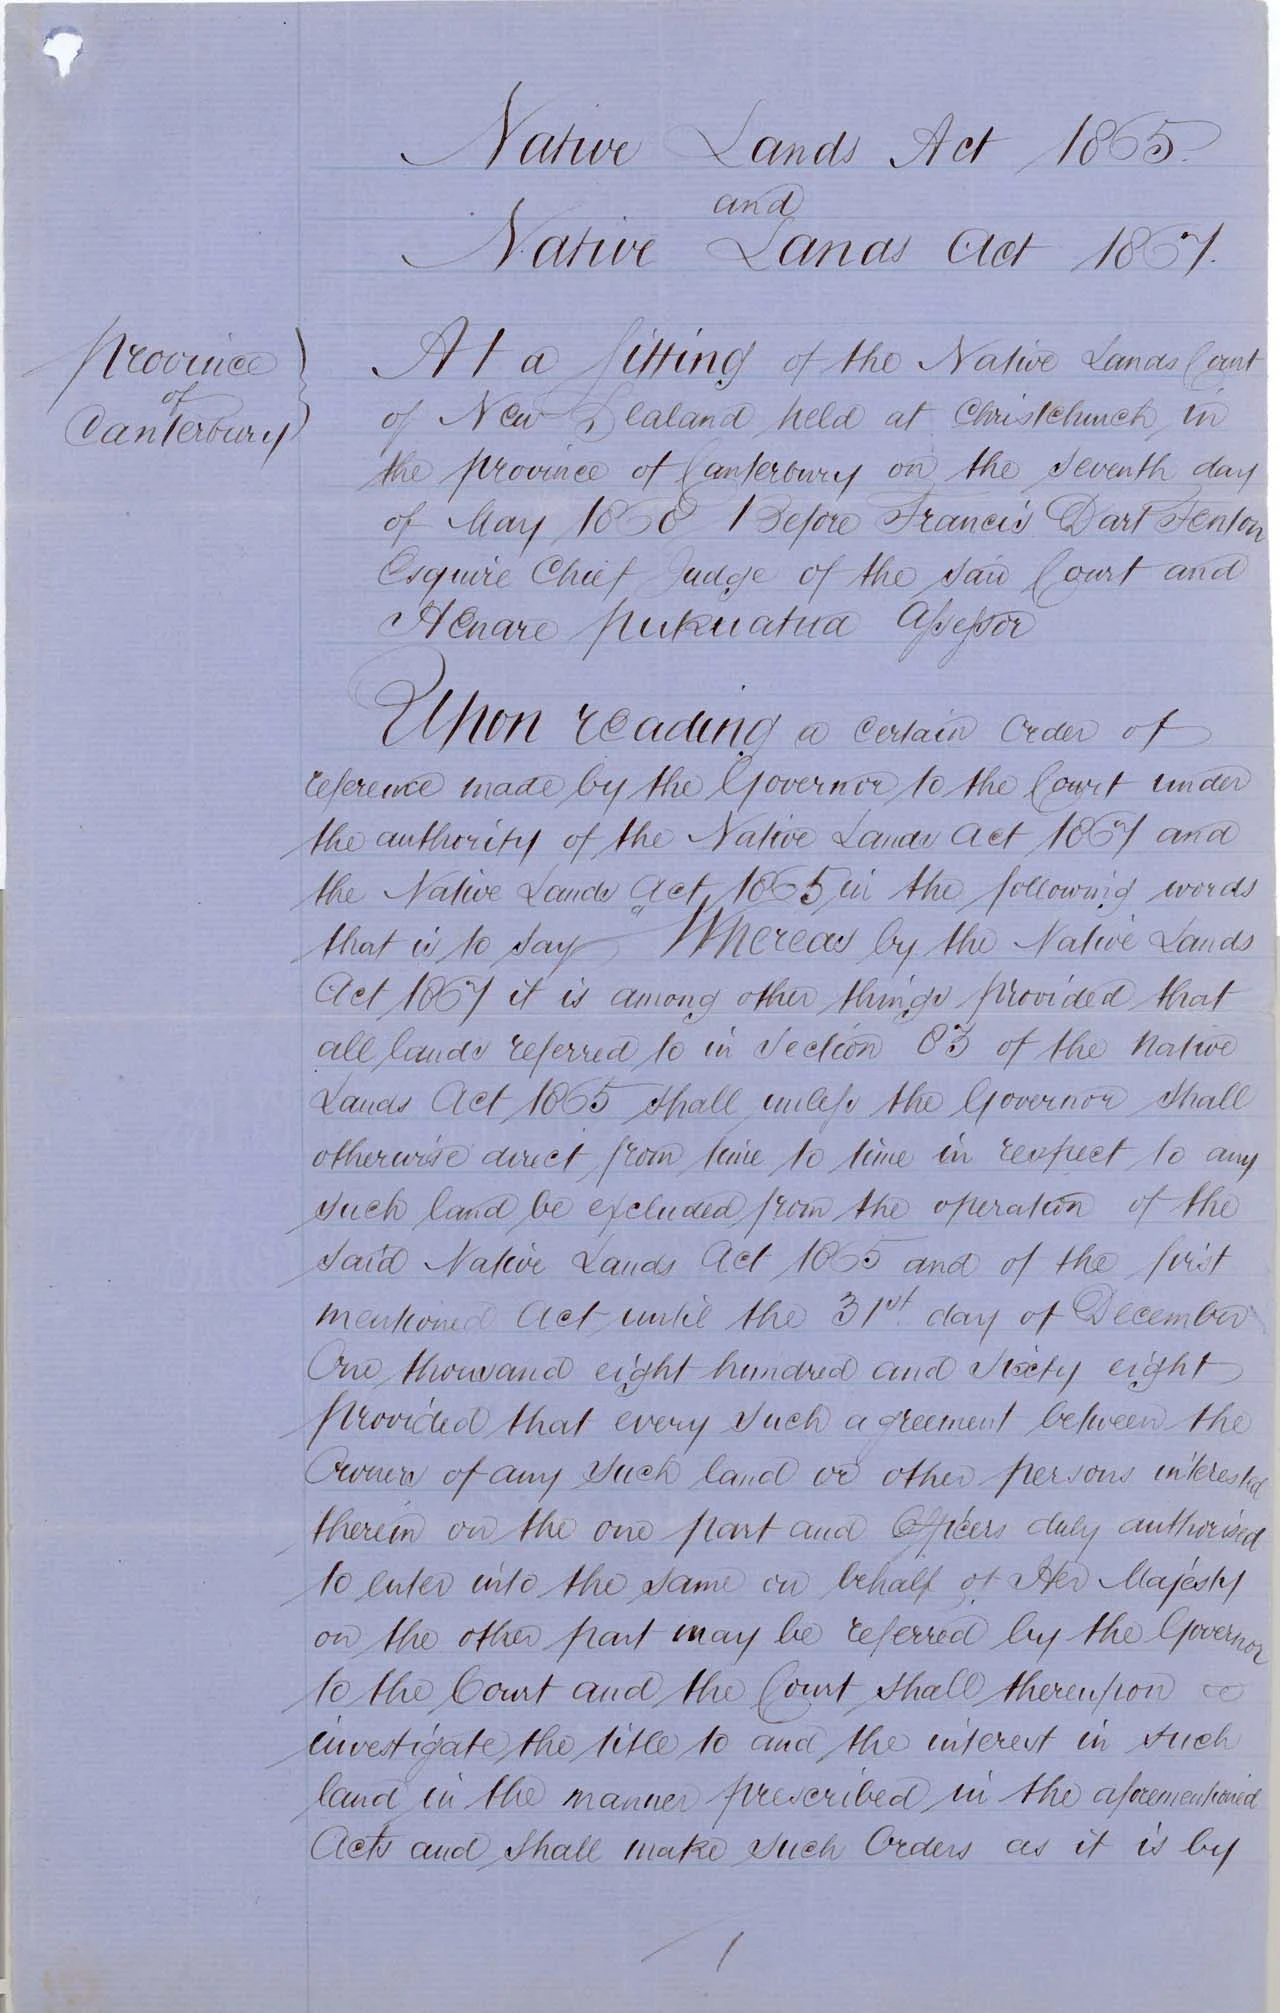 Native Lands Act 1865.
and
Native Lands Act 1867.
Province
of
Canterbury
At a sitting of the Native Lands Court
of New Zealand held at Christchurch in
the province of Canterbury on the seventh day
of May 1868 Before Francis Dart Fenton
Esquire Chief Judge of the said Court and
Henare Pukuatua Assessor
Upon reading a certain order of
reference made by the Governor to the Court under
the authority of the Native Lands Act 1867 and
the Native Lands Act 1865 in the following words
that is to say "Whereas by the Native Lands
Act 1867 it is among other things provided that
all lands referred to in Section 83 of the Native
Lands Act 1865 shall unless the Governor shall
otherwise direct from time to time in respect to any
such land be excluded from the operation of the
said Native Lands Act 1865 and of the first
mentioned Act until the 31st day of December
One thousand eight hundred and sixty eight
provided that every such agreement between the
Owners of any such land or other persons interested
therein on the one part and Officers duly authorised
to enter into the same on behalf of Her Majesty
on the other part may be referred by the Governor
to the Court and the Court shall thereupon
investigate the title to and the interest in such
land in the manner prescribed in the aforementioned
Acts and shall make such Orders as it is by
1